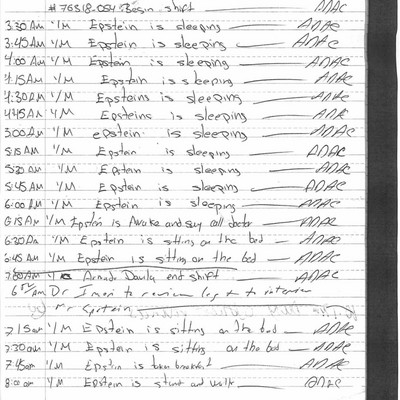 # 76318-054 Begin shift
3:30 AM I/M Epstein is sleeping
3:45 AM I/M Epstein is sleeping
4:00 AM I/M Epstein is sleeping
4:15 AM I/M Epstein is sleeping
4:30 AM I/M Epsteins is sleeping
4:45 AM I/M Epsteins is sleeping
5:00 AM I/M epstein is sleeping
5:15 AM I/M Epstein is sleeping
5:30 am I/M Epstein is sleeping
5:45 AM I/M Epstein is sleeping
6:00 AM I/M Epstein is sleeping
6:15 AM I/M Epstein is Awake and say call doctor
6:30 Am I/M Epstein is sitting on the bed
6:45 AM I/M Epstein is sitting on the bed
7:00 AM Davila end shift
6 AM Dr to review log + to interview
Mr Epstein
7:15 am I/M Epstein is sitting on the bed
7:30 am I/M Epstein is sitting on the bed
7:45 am I/M Epstein is breakfast
8:00 am I/M Epstein is and